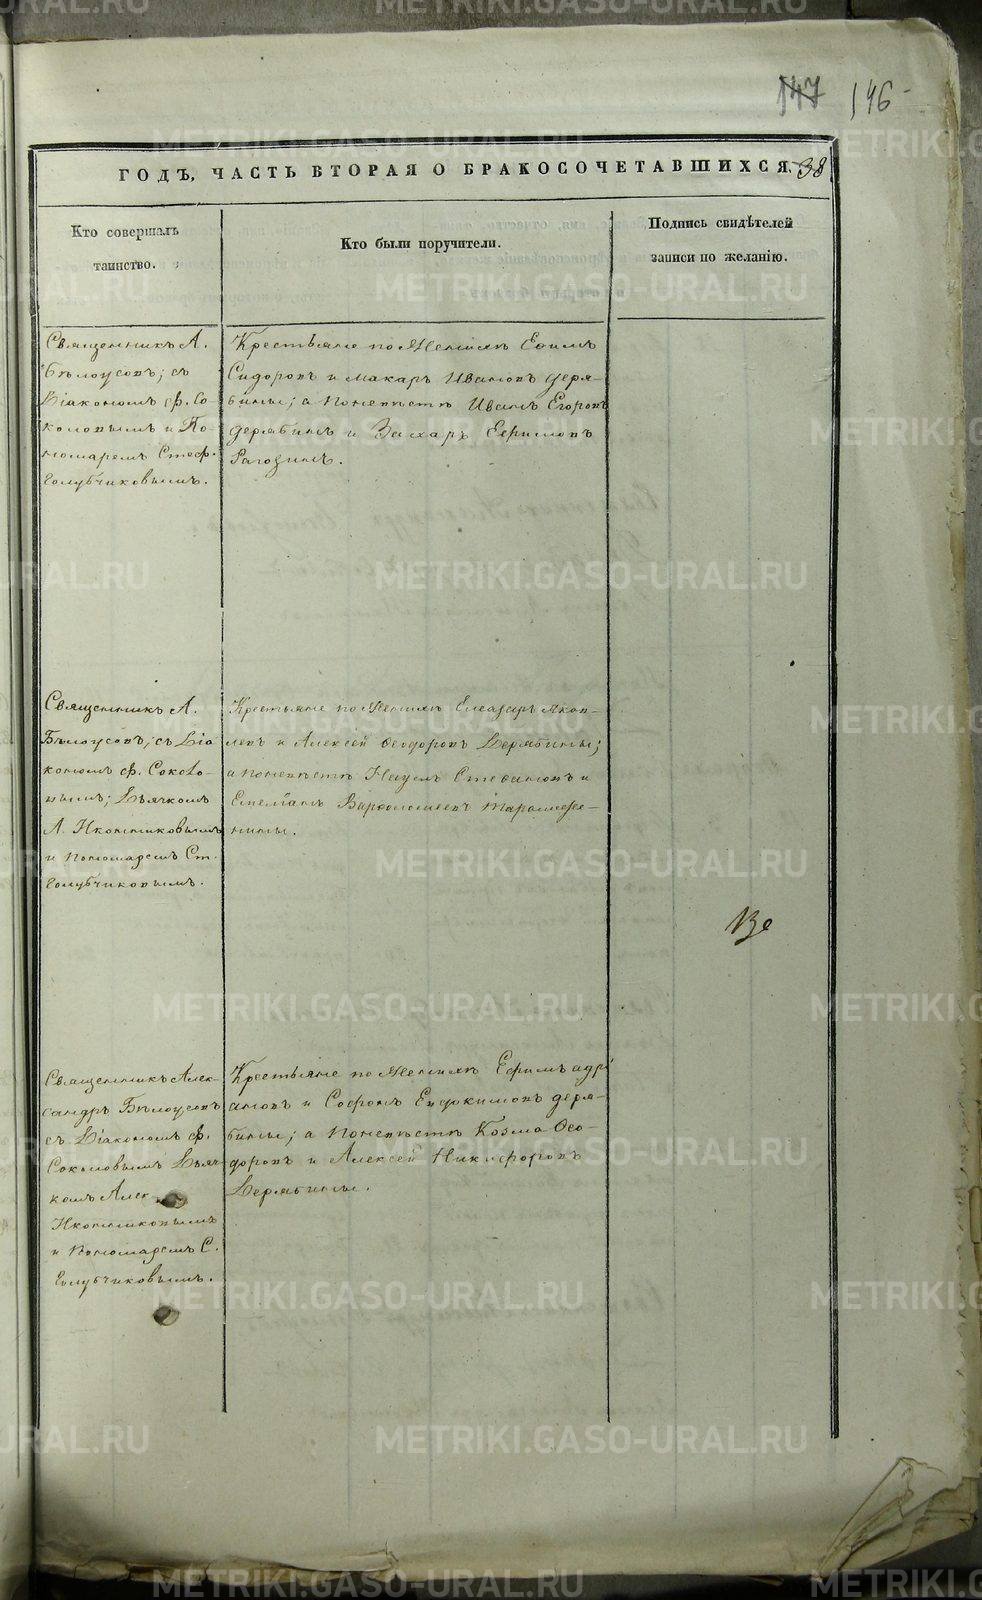 147 146
ГОДЪ, ЧАСТЬ ВТОРАЯ О БРАКОСОЧЕТАВШИХСЯ. 38
Кто совершалъ
таинство.
Кто были поручители.
Подпись свидѣтелей
записи по желанію.
Священникъ А.
Бѣлоусовъ; съ
Діакономъ Ф. Со-
коловымъ и По-
номаремъ Стеф.
Голубчиковымъ.
Крестьяне по Женихѣ Ефимъ
Сидоровъ и Макаръ Ивановъ Деря-
бины; а Поневѣстѣ Иванъ Егоровъ
Дерябинъ и Захаръ Ефимовъ
Рагозинъ.
Священникъ А.
Бѣлоусовъ, съ Діа
кономъ Ф. Соколо-
вымъ; Дьячкомъ
А. Иконниковымъ
и Пономаремъ Ст.
Голубчиковымъ.
Крестьяне по Женихѣ Елеазаръ Яков-
левъ и Алексѣй Ѳеодоровъ Дерябины;
а Поневѣстѣ Наумъ Стефановъ и
Емеліанъ Варфоломеевъ
Священникъ Алек-
сандръ Бѣлоусовъ
съ Діакономъ Ф.
Соколовымъ Дьяч-
комъ Алек.
Иконниковымъ
и Пономаремъ С.
Голубчиковымъ.
Крестьяне по Женихѣ Ефимъ Адрі
ановъ и Софронъ Евдокимовъ Деря-
бины; а Поневѣстѣ Козма Ѳео-
доровъ и Алексѣй Никифоровъ
Дерябины.
METRIKI.GASO-URAL.RU